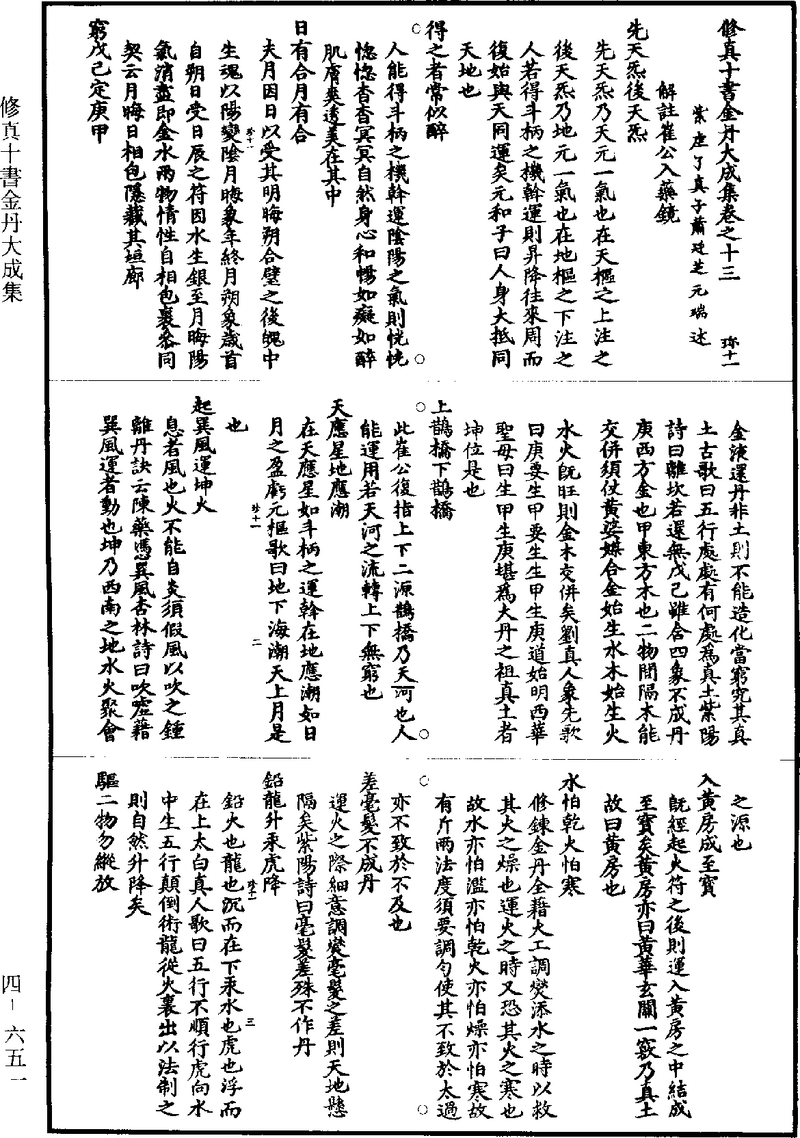 修真十書金丹大成集卷之十三　珎十一
紫虛了真子蕭廷芝元瑞述
解註崔公入藥鏡
先天炁後天炁
先天炁乃天元一氣也在天樞之上注之
後天炁乃地元一氣也在地樞之下注之
人若得斗柄之機斡運則昇降往來周而
復始與天同運矣元和子曰人身大抵同
天地也
得之者常似醉
人能得斗柄之機斡運陰陽之氣則恍恍
惚惚杳杳冥冥自然身心和暢如癡如醉
肌膚爽透美在其中
日有合月有合
夫月因日以受其明晦朔合璧之後魄中
珎十一
生魂以陽變陰月晦象年終月朔象歲首
自朔日受日辰之符因水生銀至月晦陽
氣消盡即金水兩物情性自相包裹叅同
契云月晦日相包隱藏其垣廓
窮戊己定庚甲
金液還丹非土則不能造化當窮究其真
土古歌曰五行處處有何處為真土紫陽
詩曰離坎若還無戊己雖含四象不成丹
庚西方金也甲東方木也二物間隔木能
交併須仗黃婆媒合金始生水木始生火
水火既旺則金木交併矣劉真人象先歌
曰庚要生甲要生生甲生庚道始明西華
聖母曰生甲生庚堪為大丹之祖真土者
坤位是也
上鵲橋下鵲橋
此崔公復指上下二源鵲橋乃天河也人
能運用若天河之流轉上下無窮也
天應星地應潮
在天應星如斗柄之運斡在地應潮如日
月之盈虧元樞歌曰地下海潮天上月是
珎十一
二
也
起巽風運坤火
息者風也火不能自炎須假風以吹之鍾
離丹訣云陳藥憑巽風杏林詩曰吹噓藉
巽風運者動也坤乃西南之地水火聚會
之源也
入黃房成至寶
既經起火符之後則運入黃房之中結成
至寶矣黃房亦曰黃華玄關一竅乃真土
故曰黃房也
水怕乾火怕寒
修鍊金丹全藉火工調燮添水之時以救
其火之燥也運火之時又恐其火之寒也
故水亦怕濫亦怕乾火亦怕燥亦怕寒故
有斤兩法度須要調勻使其不致於太過
亦不致於不及也
差毫髮不成丹
運火之際細意調燮毫髮之差則天地懸
隔矣紫陽詩曰毫髮差殊不作丹
鉛龍升汞虎降
珎十一
三
鉛火也龍也沉而在下汞水也虎也浮而
在上太白真人歌曰五行不順行虎向水
中生五行顛倒術龍從火裏出以法制之
則自然升降矣
驅二物勿縱放
修真十書金丹大成集
四－六五一